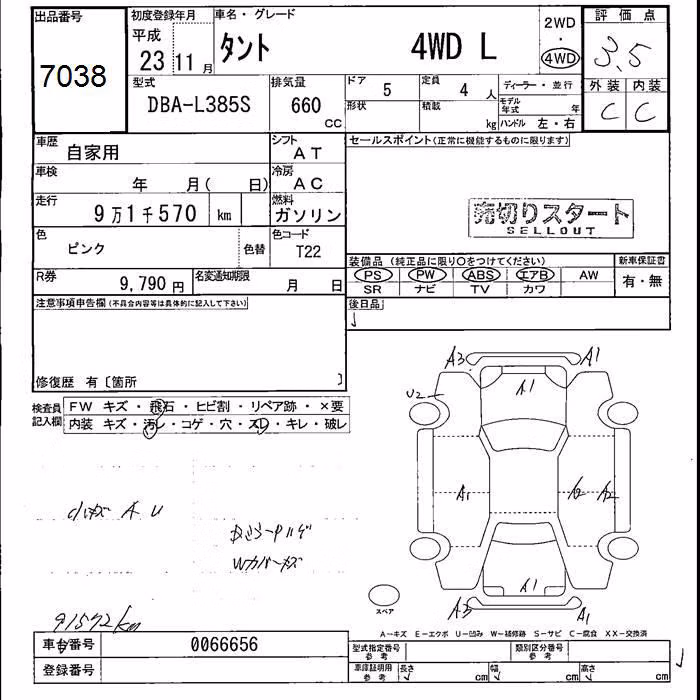 出品番号
7038
初度登録年月
平成
23 11 月
車名・グレード
タント 4WD L
2WD
・
4WD
評価点
3.5
型式
DBA-L385S
排気量
660
CC
ドア 5
定員 4 人
形状
積載 kg
ディーラー・並行
モデル年式 年
ハンドル 左・右
外装 内装
C C
車歴 自家用
シフト AT
車検 年 月( 日)
冷房 AC
走行 9万1千570 km
燃料 ガソリン
色 ピンク
色替
色コード T22
R券 9,790 円
名変通知期限 月 日
セールスポイント(正常に機能するものに限ります)
売切りスタート
SELLOUT
装備品 (純正品に限り○をつけてください)
PS PW ABS エアB AW
SR ナビ TV カワ
新車保証書
有・無
注意事項申告欄(不具合内容等は具体的に記入して下さい)
後日品
修復歴 有〔箇所 〕
検査員記入欄
FW キズ・飛石・ヒビ割・リペア跡・×要
内装 キズ・汚レ・コゲ・穴・スレ・キレ・破レ
A3 A1
U2
A1
A1 A2
A1
A3 A1
小キズ A U
Wカバーキズ
91572km
スペア
A-キズ E-エクボ U-凹み W-補修跡 S-サビ C-腐食 XX-交換済
車台番号 0066656
登録番号
型式指定番号 参考
類別区分番号 参考
車庫証明用 参考
長さ cm 幅 cm 高さ cm